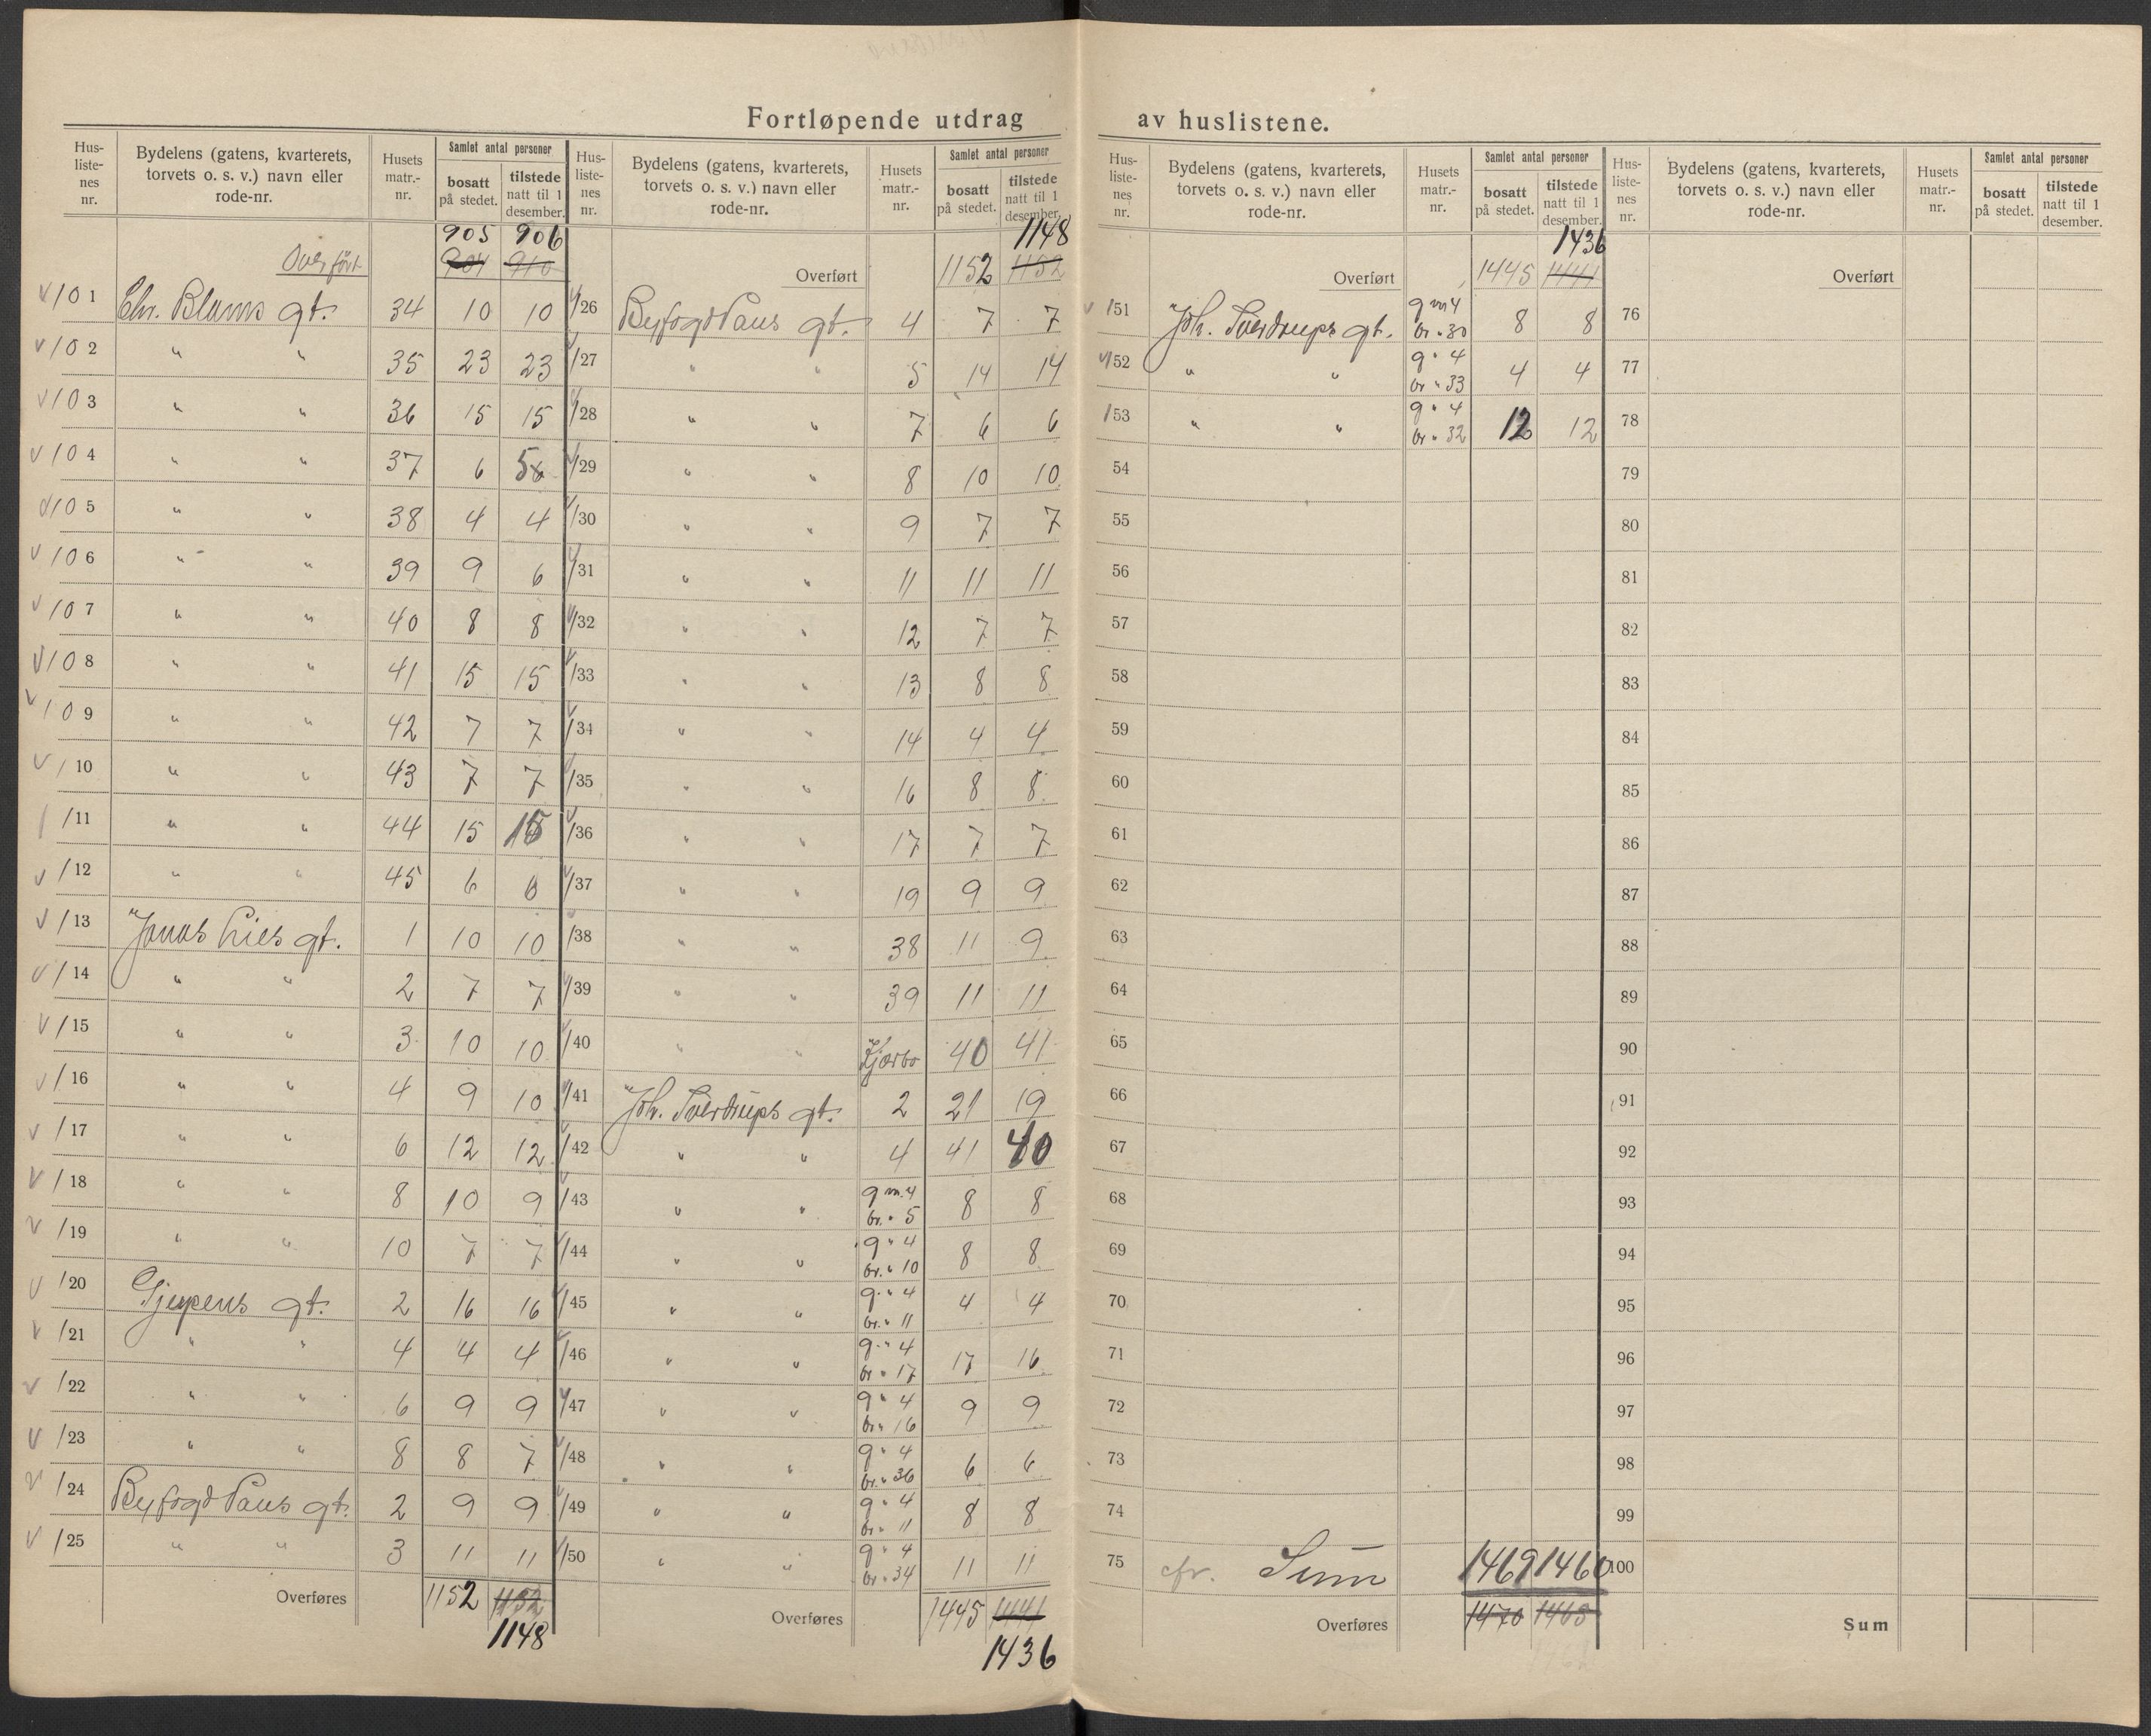 Fortløpende utdrag av huslistene.
Hus-listenes nr. | Bydelens (gatens, kvarterets, torvets o. s. v.) navn eller rode-nr. | Husets matr.-nr. | Samlet antal personer bosatt på stedet. | tilstede natt til 1 desember.
905 906
Overført 904 910
101 Chr. Bloms gt. 34 10 10
102 " " 35 23 23
103 " " 36 15 15
104 " " 37 6 5
105 " " 38 4 4
106 " " 39 9 6
107 " " 40 8 8
108 " " 41 15 15
109 " " 42 7 7
110 " " 43 7 7
/11 " " 44 15 15
/12 " " 45 6 6
/13 Jonas Lies gt. 1 10 10
/14 " " 2 7 7
/15 " " 3 10 10
/16 " " 4 9 10
/17 " " 6 12 12
/18 " " 8 10 9
/19 " " 10 7 7
/20 Gjerpens gt. 2 16 16
/21 " " 4 4 4
/22 " " 6 9 9
/23 " " 8 8 7
/24 Byfogd Paus gt. 2 9 9
/25 " " 3 11 11
Overføres 1152 1152
1148
Hus-listenes nr. | Bydelens (gatens, kvarterets, torvets o. s. v.) navn eller rode-nr. | Husets matr.-nr. | Samlet antal personer bosatt på stedet. | tilstede natt til 1 desember.
1148
Overført 1152 1152
/26 Byfogd Paus gt. 4 7 7
/27 " " 5 14 14
/28 " " 7 6 6
/29 " " 8 10 10
/30 " " 9 7 7
/31 " " 11 11 11
/32 " " 12 7 7
/33 " " 13 8 8
/34 " " 14 4 4
/35 " " 16 8 8
/36 " " 17 7 7
/37 " " 19 9 9
/38 " " 38 11 9
/39 " " 39 11 11
/40 " " Kjørbo 40 41
/41 Joh. Sverdrups gt. 2 21 19
/42 " " 4 41 40
/43 " " g nr. 4 br. " 5 8 8
/44 " " g " 4 br. " 10 8 8
/45 " " g. " 4 br. " 11 4 4
/46 " " g. " 4 br " 17 17 16
/47 " " g " 4 br " 16 9 9
/48 " " g " 4 br. " 36 6 6
/49 " " g " 4 br " 11 8 8
/50 " " g " 4 br " 34 11 11
Overføres 1445 1441
1436
Hus-listenes nr. | Bydelens (gatens, kvarterets, torvets o. s. v.) navn eller rode-nr. | Husets matr.-nr. | Samlet antal personer bosatt på stedet. | tilstede natt til 1 desember.
1436
Overført 1445 1441
/51 Joh. Sverdrups gt. g nr 4 br " 30 8 8
/52 " " g " 4 br " 33 4 4
/53 " " g " 4 br " 32 12 12
54
55
56
57
58
59
60
61
62
63
64
65
66
67
68
69
70
71
72
73
74
75 cfr. Sum 1469 1460
Overføres 1470 1465
Hus-listenes nr. | Bydelens (gatens, kvarterets, torvets o. s. v.) navn eller rode-nr. | Husets matr.-nr. | Samlet antal personer bosatt på stedet. | tilstede natt til 1 desember.
Overført
76
77
78
79
80
81
82
83
84
85
86
87
88
89
90
91
92
93
94
95
96
97
98
99
100
Sum